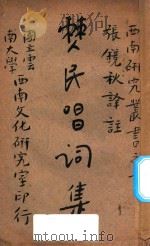 西南研究叢書之
張鏡秋譯註
僰民唱詞集
國立雲
南大學
西南文化研究室印行